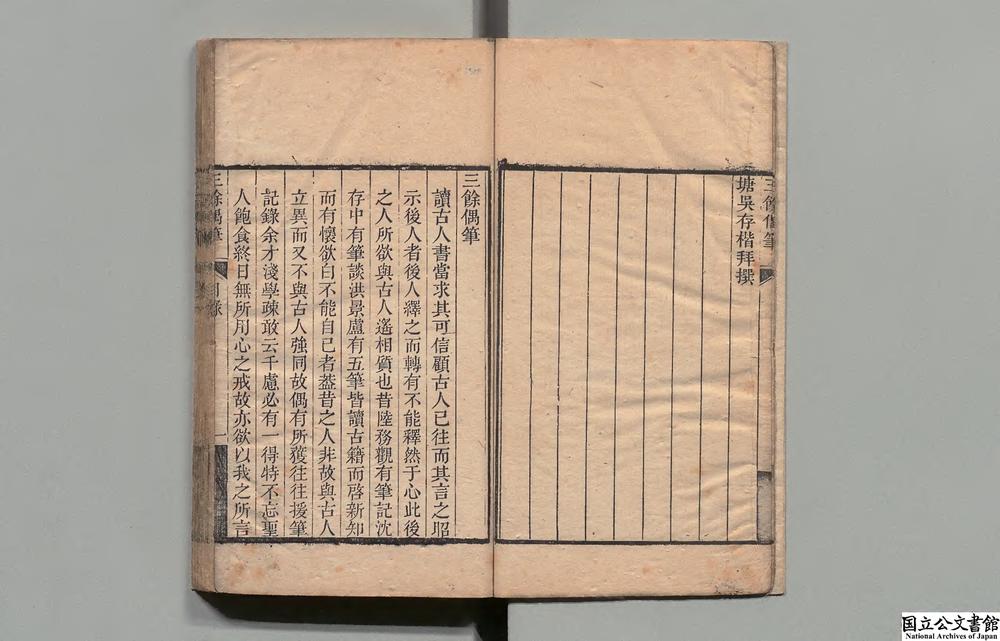 三餘偶筆
塘吳存楷拜撰
三餘偶筆
讀古人書當求其可信顧古人已往而其言之昭
示後人者後人繹之而轉有不能釋然于心此後
之人所欲與古人遙相質也昔陸務觀有筆記沈
存中有筆談洪景盧有五筆皆讀古籍而啓新知
而有懷欲白不能自已者葢昔之人非故與古人
立異而又不與古人強同故偶有所獲往往援筆
記錄余才淺學疎敢云千慮必有一得特不忘聖
人飽食終日無所用心之戒故亦欲以我之所言
三餘偶筆
目錄
一
国立公文書館
National Archives of Japan